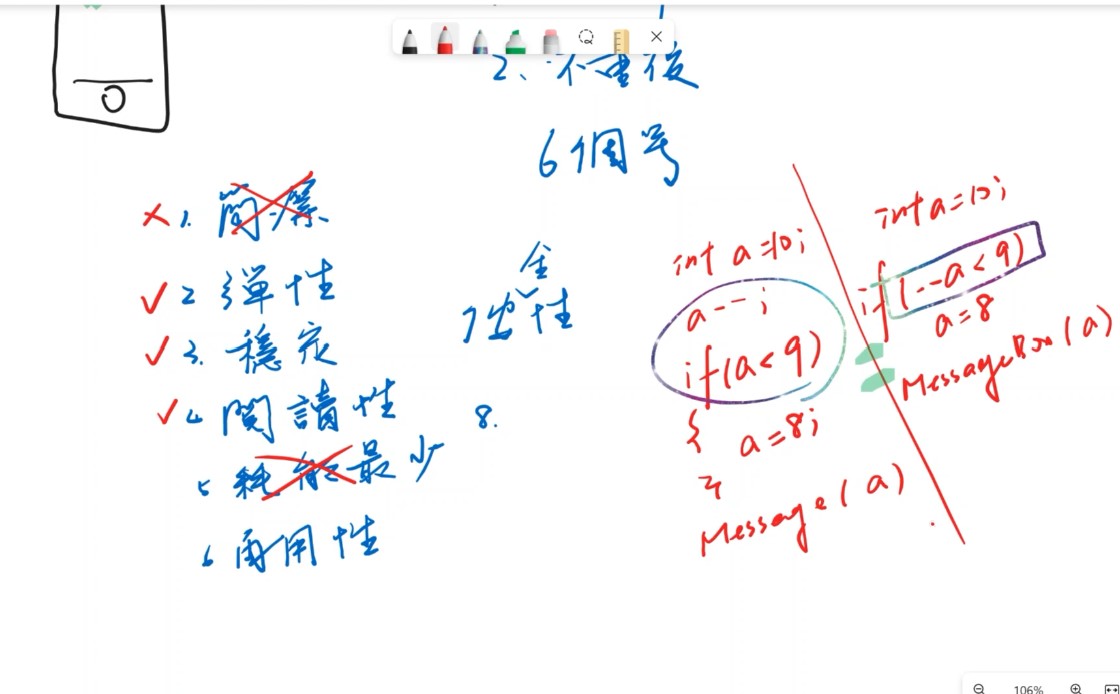 2、不重複
6個号
1. 簡潔
2 彈性
3. 穩定
4 閱讀性
5 耗能最少
6 再用性
全
7 性
8.
int a=10;
a--;
if(a<9)
{
a=8;
}
Message(a)
int a=10;
if(--a<9)
a=8
MessageBox(a)
106%